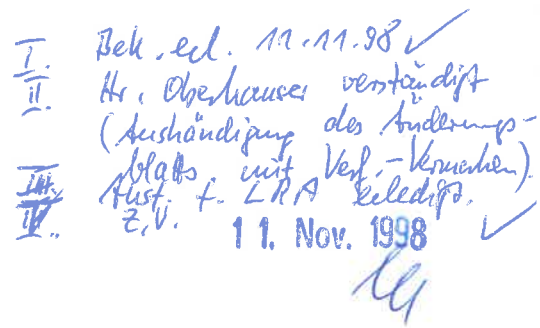 I. Bek. erl. 11.11.98 ✓
II. Hr. Oberhauser verständigt
(Aushändigung des Änderungs-
blatts mit Verf.-Vermerken).
III. Ausf. f. LRA erledigt.
IV. Z.V. ✓
11. Nov. 1998